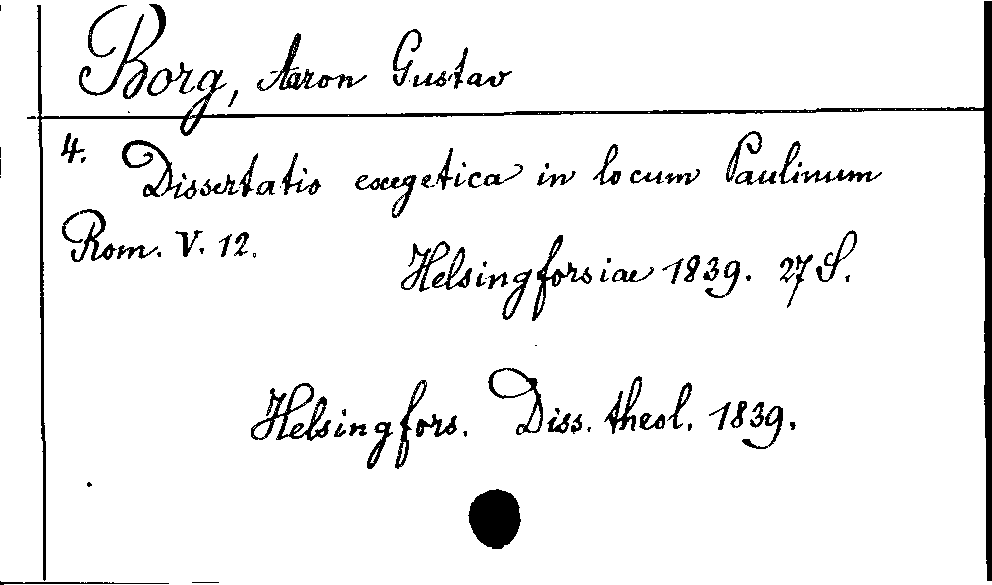 Borg, Aaron Gustav
4. Dissertatio exegetica in locum Paulinum
Rom. V. 12.
Helsingforsiae 1839. 27 S.
Helsingfors. Diss. theol. 1839.